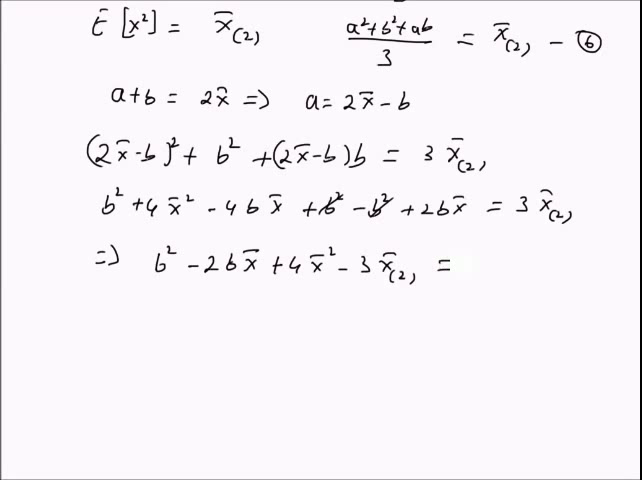 E[x²] = x̄₍₂₎   (a²+b²+ab)/3 = x̄₍₂₎ – ⑥
a+b = 2x̄ => a = 2x̄ – b
(2x̄–b)² + b² + (2x̄–b)b = 3 x̄₍₂₎
b² + 4x̄² – 4bx̄ + b² – b² + 2bx̄ = 3 x̄₍₂₎
=> b² – 2bx̄ + 4x̄² – 3x̄₍₂₎ =